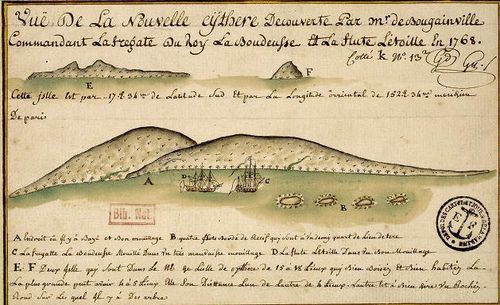 Vuë De La Nouvelle cythere Decouverte Par mr. de Bougainville
Commandant La fregate Du Roy La Boudeuse et La flute Letoille En 1768.
Cotté K No. 13
E
F
Cette Isle Est par 17d 36m de Latitude Sud Et par La Longitude orriental de 152d 36m meridien
De paris
A
D
C
B
Bib. Nat.
A Endroit où il y à Baye et Bon mouillage B quatre Ilots Bordé de Recif qui sont à un demy quart de Lieu de terre
C La fregatte La Boudeuse Mouillé Dans un tres mauvaise mouillage D La flute Letoille Dans un Bon Mouillage
E F Deux Isle qui sont Dans Le
de 15 à 18 Lieux qui sont Boisés et Bien habitées La
plus grande peut avoir 4 à 5 Lieux
Distance Lun de Lautre de 4 Lieux Lautre
Rond Sur Les quel il y à Des arbre